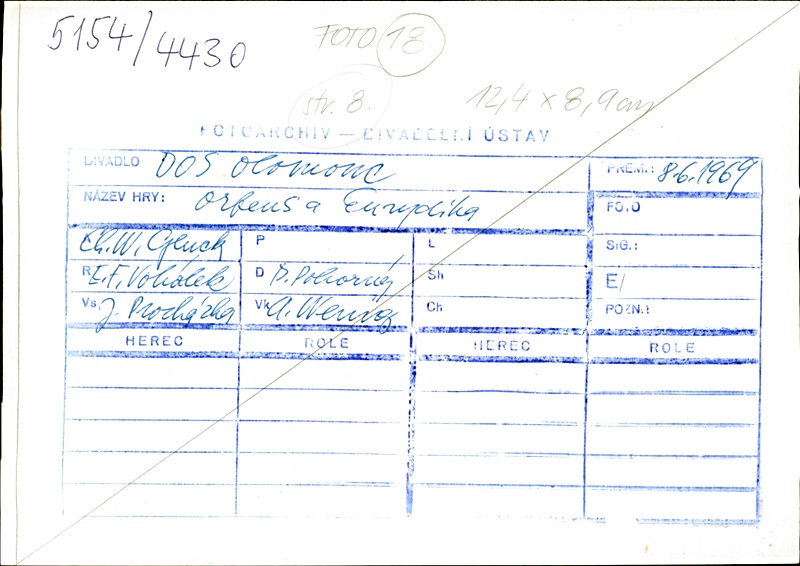 5154/4430
FOTO 18
str. 8.
12,4 x 8,9 cm
FOTOARCHIV — DIVADELNÍ ÚSTAV
DIVADLO DOS Olomouc
PREM.: 8.6.1969
NÁZEV HRY: Orfeus a Eurydika
FOTO
Ch. W. Gluck
P
L
SIG.:
R E. F. Vokálek
D P. Pokorný
Sh
E/
Vs. J. Procházka
Vk
Ch
POZN.:
HEREC ROLE HEREC ROLE